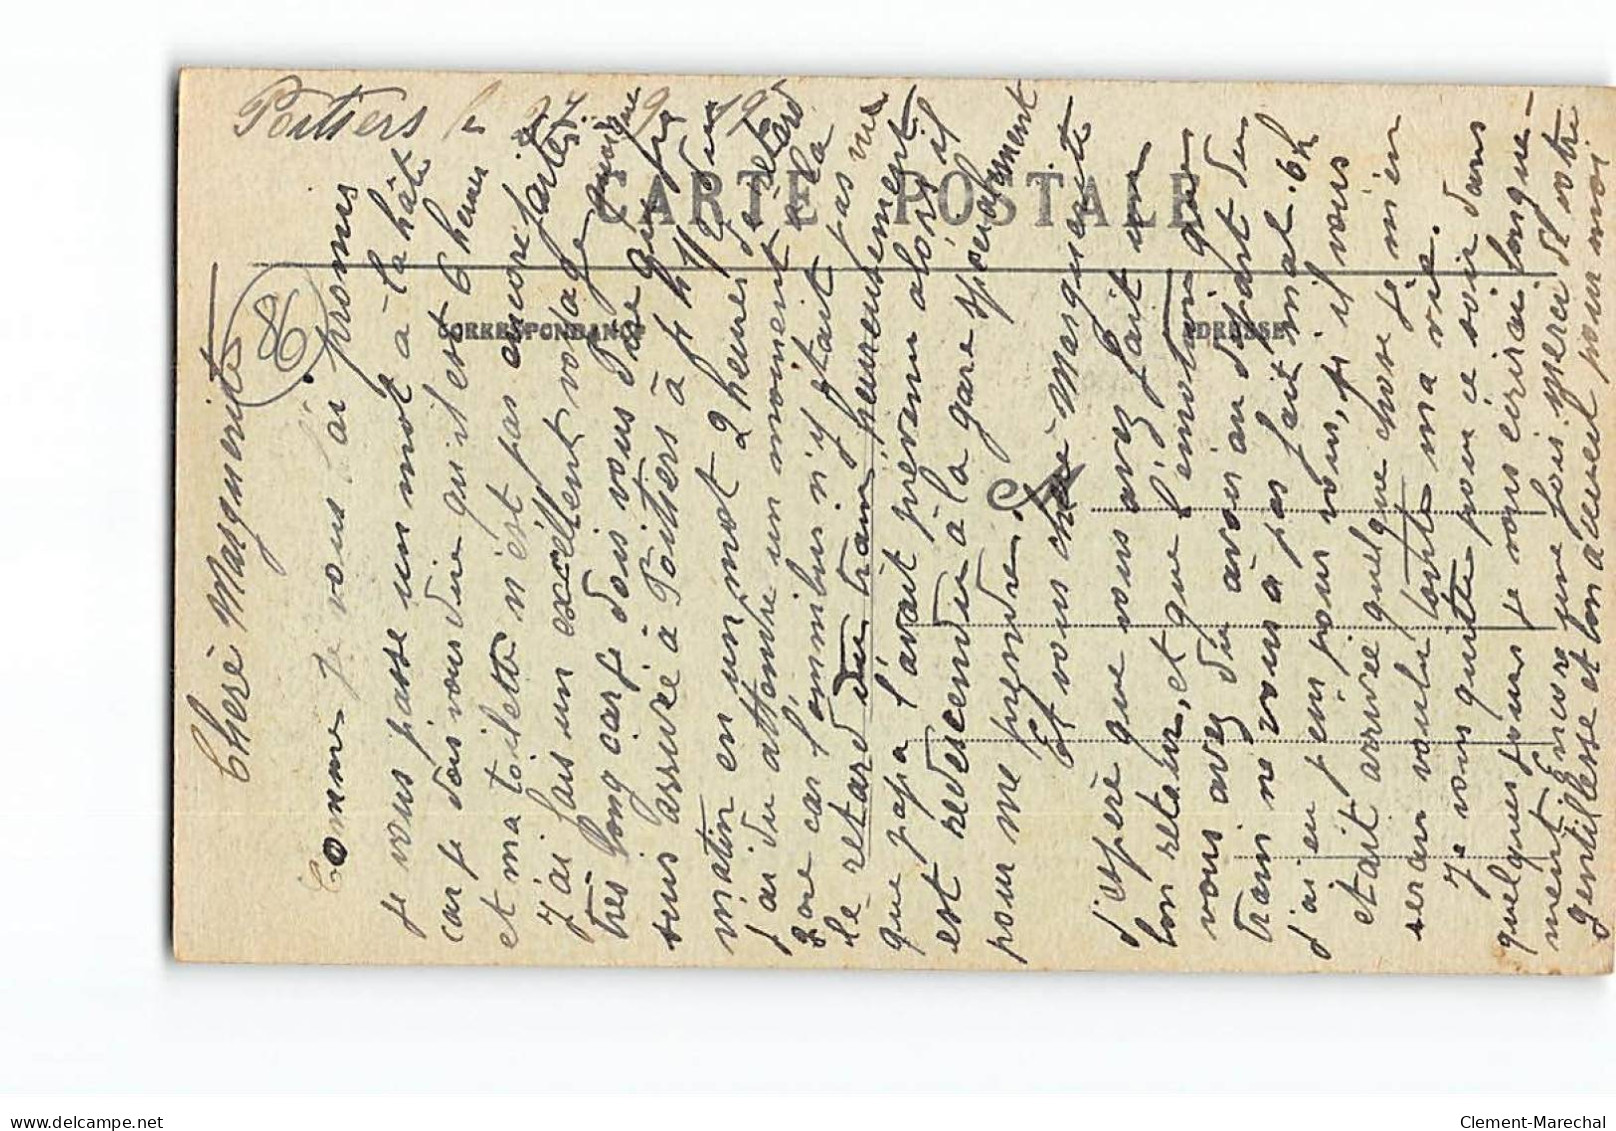 Poitiers le 27 9 19
Chère Marguerite
86
CARTE POSTALE
CORRESPONDANCE
ADRESSE
Comme je vous l'ai promis
je vous passe un mot à la hâte
car je dois vous dire qu'il est 6 heures
et ma toilette n'est pas encore faite
J'ai fais un excellent voyage quoique
très long car je dois vous dire que je
suis arrivée à Poitiers à 1 h 1/2 du
matin en un mot 2 heures de retard
j'ai du attendre un moment à la
gare car l'omnibus n'y était pas vue
le retard du train heureusement
que papa l'avait prévenu alors il
est redescendu à la gare spécialement
pour me prendre.
Et vous chère Marguerite
j'espère que vous avez fait un
bon retour, et que l'émotion que
vous avez du avoir au départ du
train ne vous à pas fait mal. 6h
j'ai eu peur pour vous, si il vous
était arrivée quelque chose je m'en
serai voulu toute ma vie.
Je vous quitte pour ce soir dans
quelques jours je vous écrirai longue-
ment Encore une fois merci de votre
gentillesse et bon acceuil pour moi
Clement-Marechal
delcampe.net